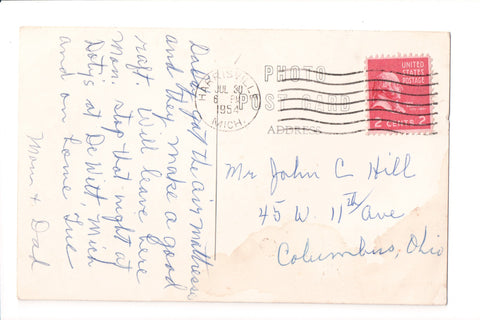 Dad got the air mattresses
and they make a good
raft. Will leave here
Mon. stop that night at
Doty's at DeWitt, Mich
and on home Tue
Mom + Dad
HARRISVILLE
JUL 30
6 PM
1954
MICH.
PHOTO
POST CARD
ADDRESS
UNITED
STATES
POSTAGE
2 CENTS 2
Mr John C Hill
45 W. 11th Ave
Columbus, Ohio